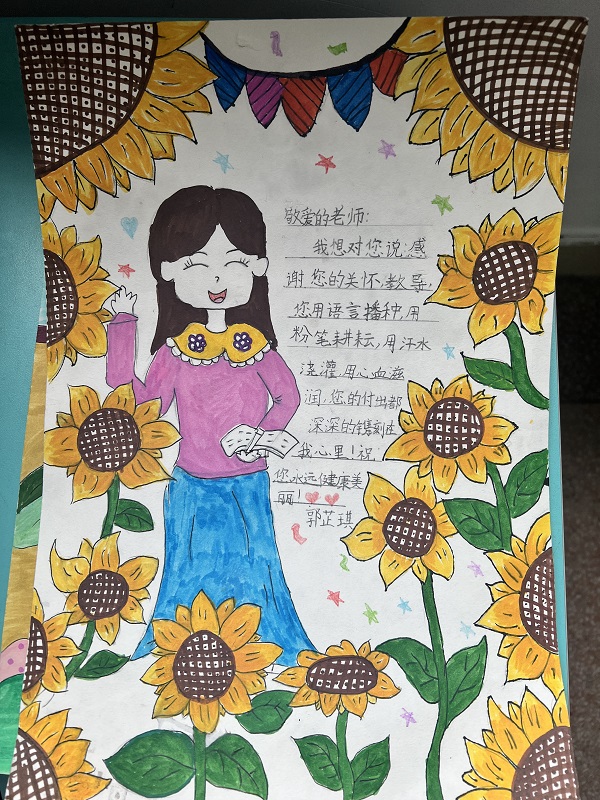 敬爱的老师:
我想对您说:感
谢您的关怀,教导,
您用语言播种,用
粉笔耕耘,用汗水
浇灌,用心血滋
润,您的付出都
深深的镌刻在
我心里!祝,
您永远健康美
丽!
郭芷琪